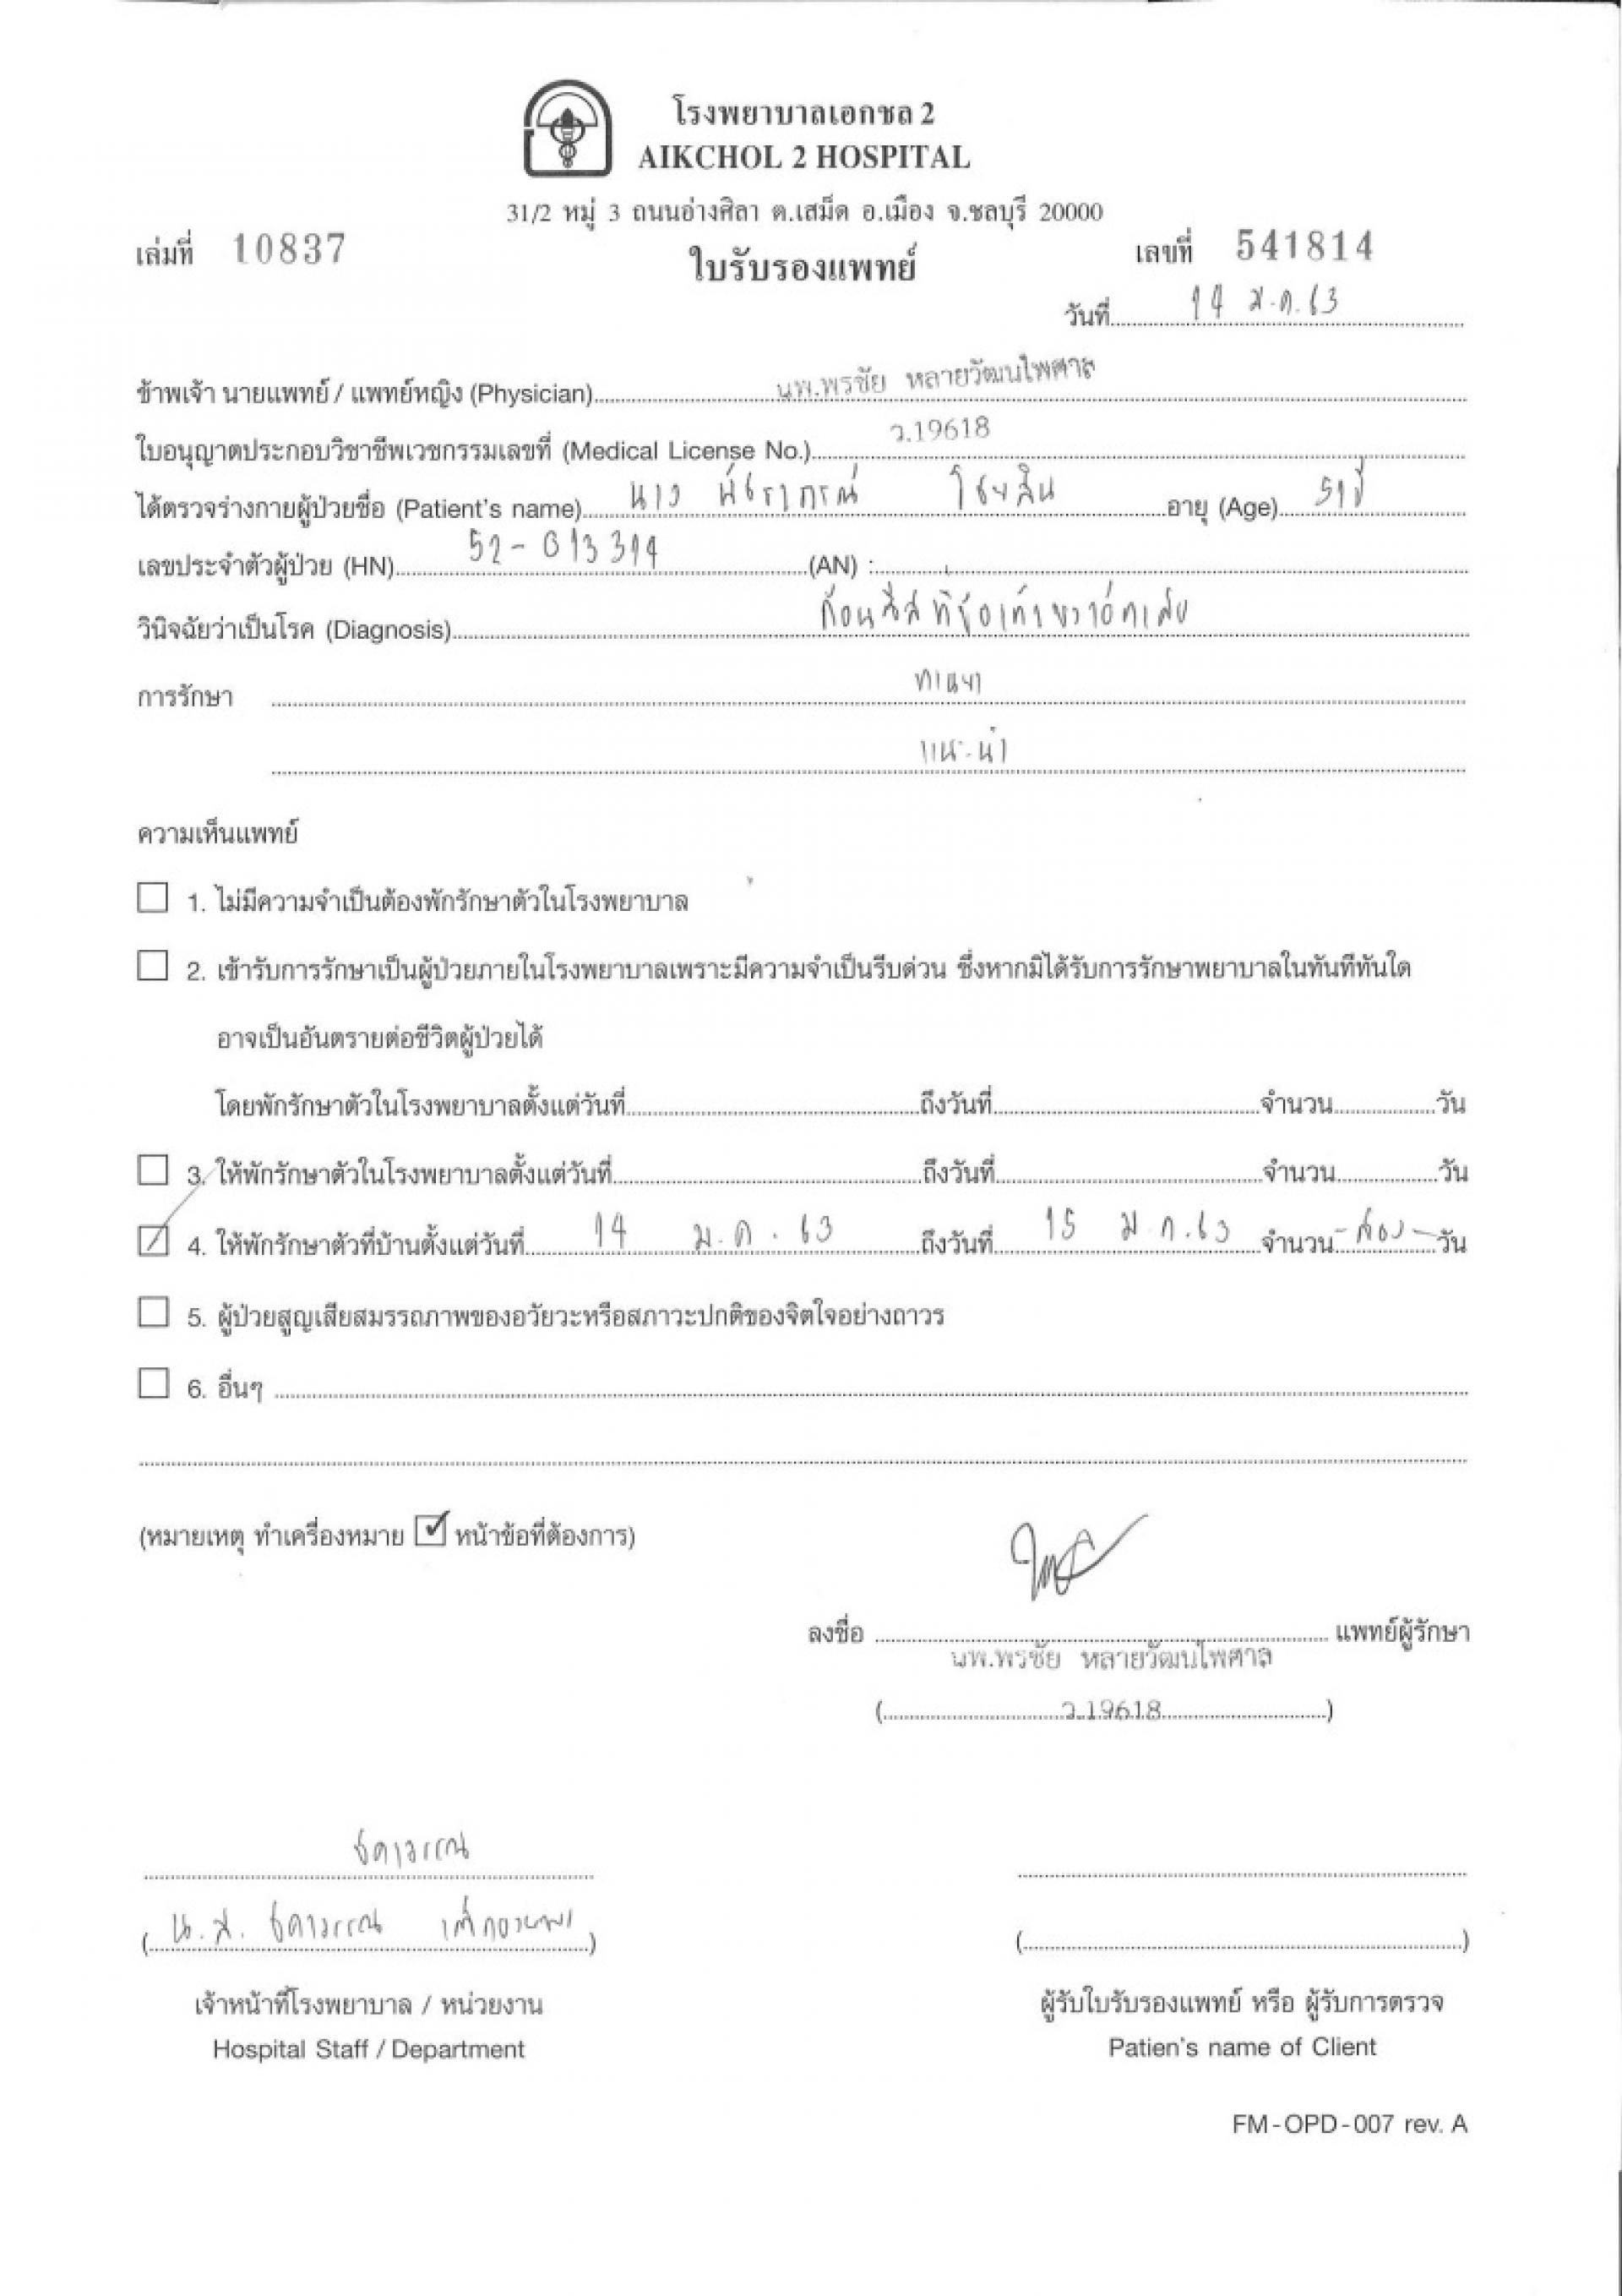 โรงพยาบาลเอกชล 2
AIKCHOL 2 HOSPITAL
31/2 หมู่ 3 ถนนอ่างศิลา ต.เสม็ด อ.เมือง จ.ชลบุรี 20000
เล่มที่ 10837
ใบรับรองแพทย์
เลขที่ 541814
วันที่ 14 ม.ค. 63
ข้าพเจ้า นายแพทย์ / แพทย์หญิง (Physician) นพ.พรชัย หลายวัฒนไพศาล
ใบอนุญาตประกอบวิชาชีพเวชกรรมเลขที่ (Medical License No.) ว.19618
ได้ตรวจร่างกายผู้ป่วยชื่อ (Patient's name) นาง พัชราภรณ์ อายุ (Age) 51 ปี
เลขประจำตัวผู้ป่วย (HN) 52-013314 (AN) :
วินิจฉัยว่าเป็นโรค (Diagnosis) ก้อนซีสที่ข้อเท้าขวาอักเสบ
การรักษา ทานยา
แนะนำ
ความเห็นแพทย์
1. ไม่มีความจำเป็นต้องพักรักษาตัวในโรงพยาบาล
2. เข้ารับการรักษาเป็นผู้ป่วยภายในโรงพยาบาลเพราะมีความจำเป็นรีบด่วน ซึ่งหากมิได้รับการรักษาพยาบาลในทันทีทันใด
อาจเป็นอันตรายต่อชีวิตผู้ป่วยได้
โดยพักรักษาตัวในโรงพยาบาลตั้งแต่วันที่ ถึงวันที่ จำนวน วัน
3. ให้พักรักษาตัวในโรงพยาบาลตั้งแต่วันที่ ถึงวันที่ จำนวน วัน
4. ให้พักรักษาตัวที่บ้านตั้งแต่วันที่ 14 ม.ค. 63 ถึงวันที่ 15 ม.ค. 63 จำนวน - สอง - วัน
5. ผู้ป่วยสูญเสียสมรรถภาพของอวัยวะหรือสภาวะปกติของจิตใจอย่างถาวร
6. อื่นๆ
(หมายเหตุ ทำเครื่องหมาย ☑ หน้าข้อที่ต้องการ)
ลงชื่อ แพทย์ผู้รักษา
นพ.พรชัย หลายวัฒนไพศาล
(ว.19618)
ธิดาวรรณ
(น.ส. ธิดาวรรณ )
เจ้าหน้าที่โรงพยาบาล / หน่วยงาน
Hospital Staff / Department
ผู้รับใบรับรองแพทย์ หรือ ผู้รับการตรวจ
Patien's name of Client
FM-OPD-007 rev. A